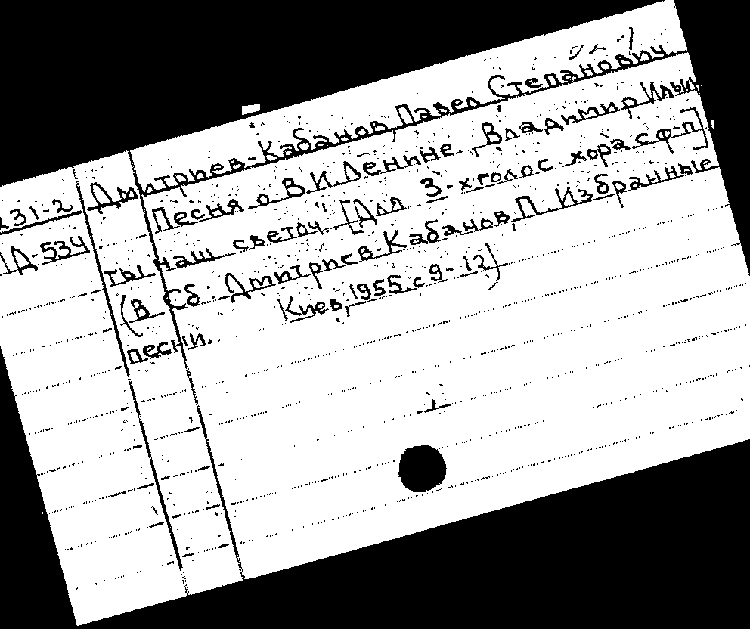 231-2 Дмитриев-Кабанов, Павел Степанович
Д-534 Песня о В.И.Ленине "Владимир Ильич
ты наш светоч". [Для 3-хголос хора с ф-п]
(В Сб: Дмитриев-Кабанов, П. Избранные
песни. Киев, 1955, с 9-12)